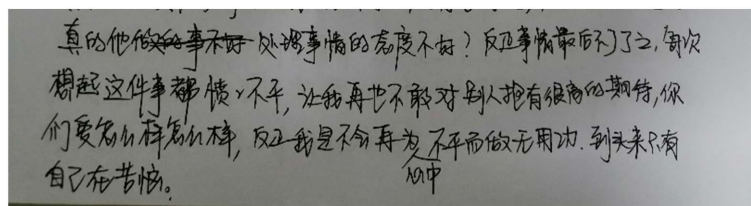 真的他做的事不好处理事情的态度不好?反正事情最后不了了之,每次
想起这件事都愤愤不平,让我再也不敢对别人抱有很高的期待,你
们爱怎么样怎么样,反正我是不会再为心中不平而做无用功.到头来只有
自己在苦恼。